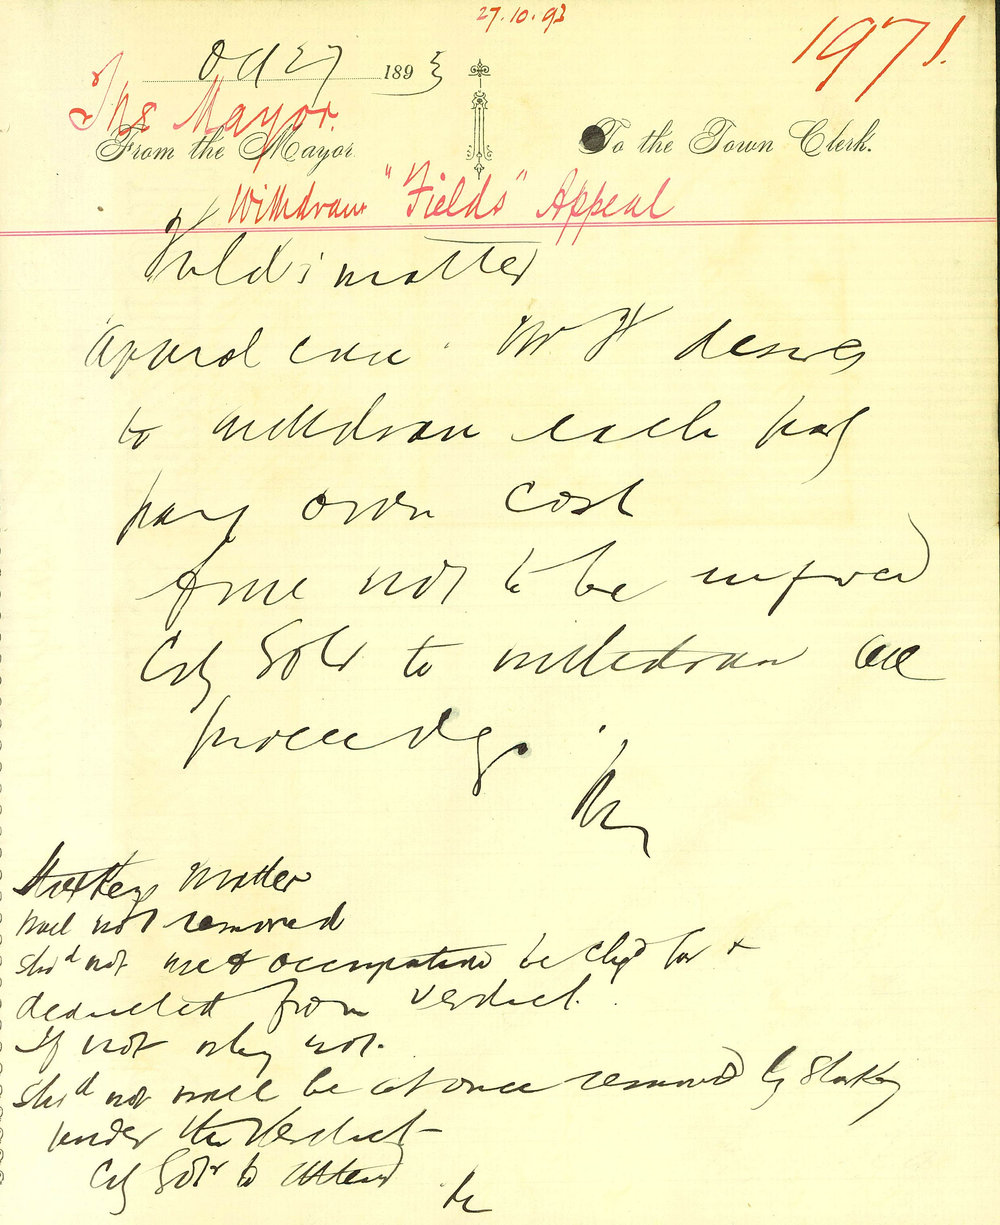 27.10.93
1971.
Oct 27 1893
The Mayor.
From the Mayor
To the Town Clerk.
Withdraw "Fields" Appeal
Field's matter
Appeal case. Mr F desires
to withdraw each party
pay own cost
fine not to be enforced
City Solr to withdraw all
proceedgs.
Starkey matter
wall not removed
shd not use & occupation be chgd for &
deducted from verdict.
If not why not.
Shd not wall be at once removed by Starkey
under the verdict—
City Solr to attend